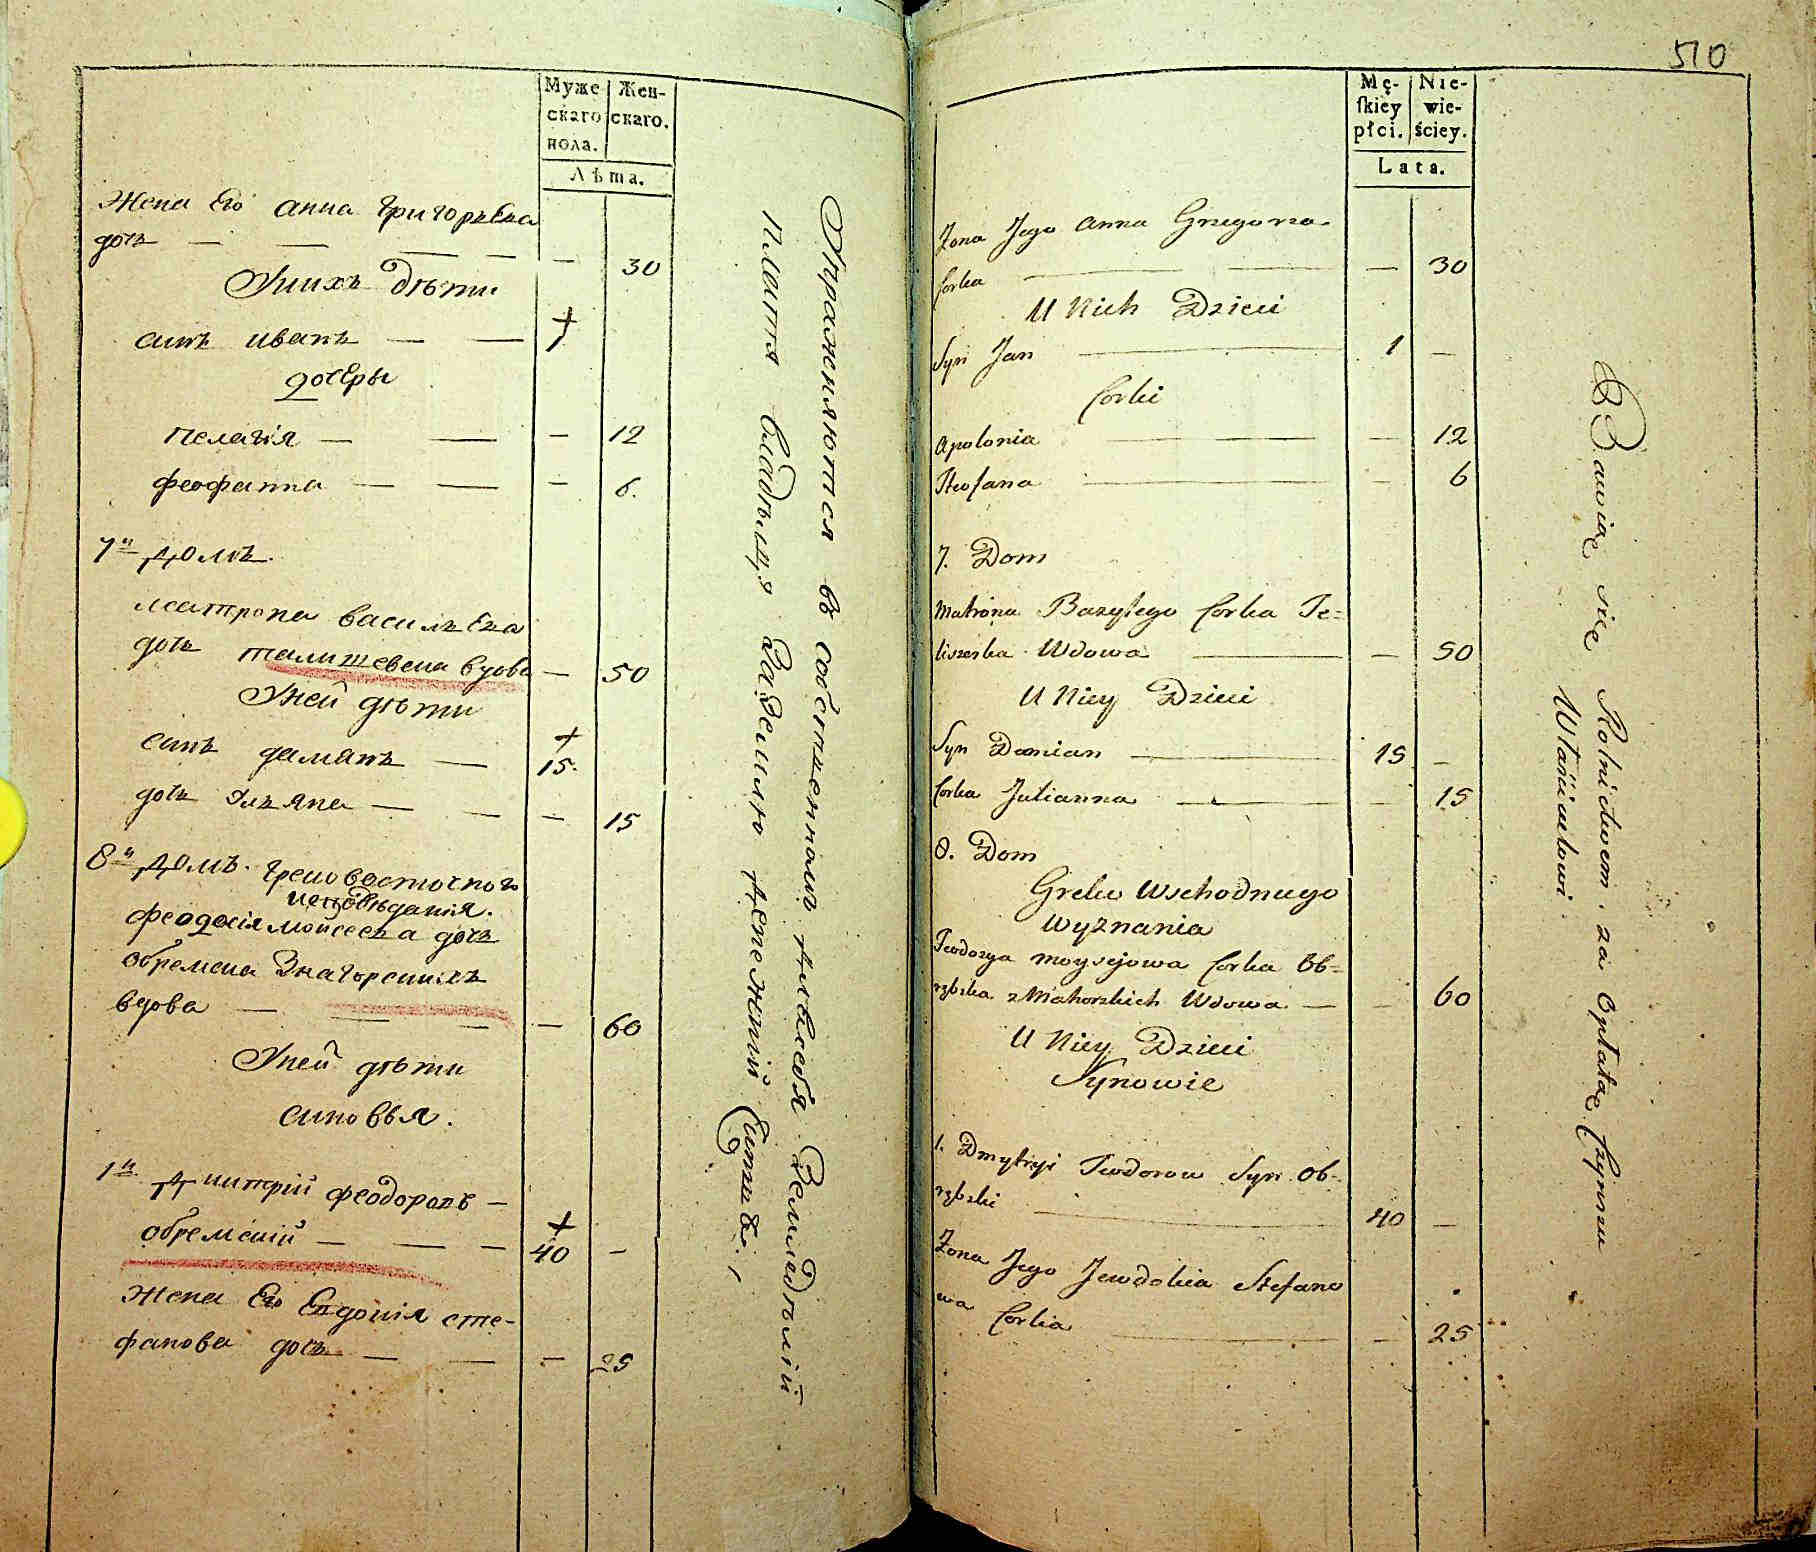 510
Муже
скаго
пола.
Жен-
скаго.
Лѣта.
Жена Его Анна Григорьева
дочь — — — — — 30
У нихъ Дѣти
Синъ иванъ — — 1
дочеры
пелагія — — — 12
феофанна — — — 6.
7й Домъ.
матрона васильева
дочь талишевска вдова — 50
У ней дѣти
синъ дамянъ — 15.
дочь Ульяна — — — 15
8й Домъ. Греко восточного
исповѣданія.
феодосія моисеева дочь
обремска Знагорскихъ
вдова — — — — 60
У ней дѣти
синовья.
1й Дмитрій феодоровъ —
обремскій — — — 40 —
Жена Его Евдокія сте-
фанова дочь — — — 25
Упражняются въ собственномъ для себя Земледѣлій
платя владѣльцу За Землю Денежній Чиншъ.
Mę-
skiey
płci.
Nie-
wie-
ściey.
Lata.
Zona Jego Anna Gregorza
Corka — — — 30
U Nich Dzieci
Syn Jan — 1 —
Corki
Apolonia — — 12
Teofana — — 6
7. Dom
Matrona Bazylego Corka Te=
liszeska Wdowa — — 50
U Niey Dzieci
Syn Damian — 15 —
Corka Julianna — — 15
8. Dom
Greko Wschodniego
Wyznania
Teodozya Moysejowa Corka Ob=
rzbska z Mahorskich Wdowa — — 60
U Niey Dzieci
Synowie
1. Dmytryi Teodorow Syn Ob-
rzbski — 40 —
Zona Jego Jewdokia Stefano
wa Corka — — 25
Bawią się Rolnictwem, za Opłatą Czynszu
Właścicielowi